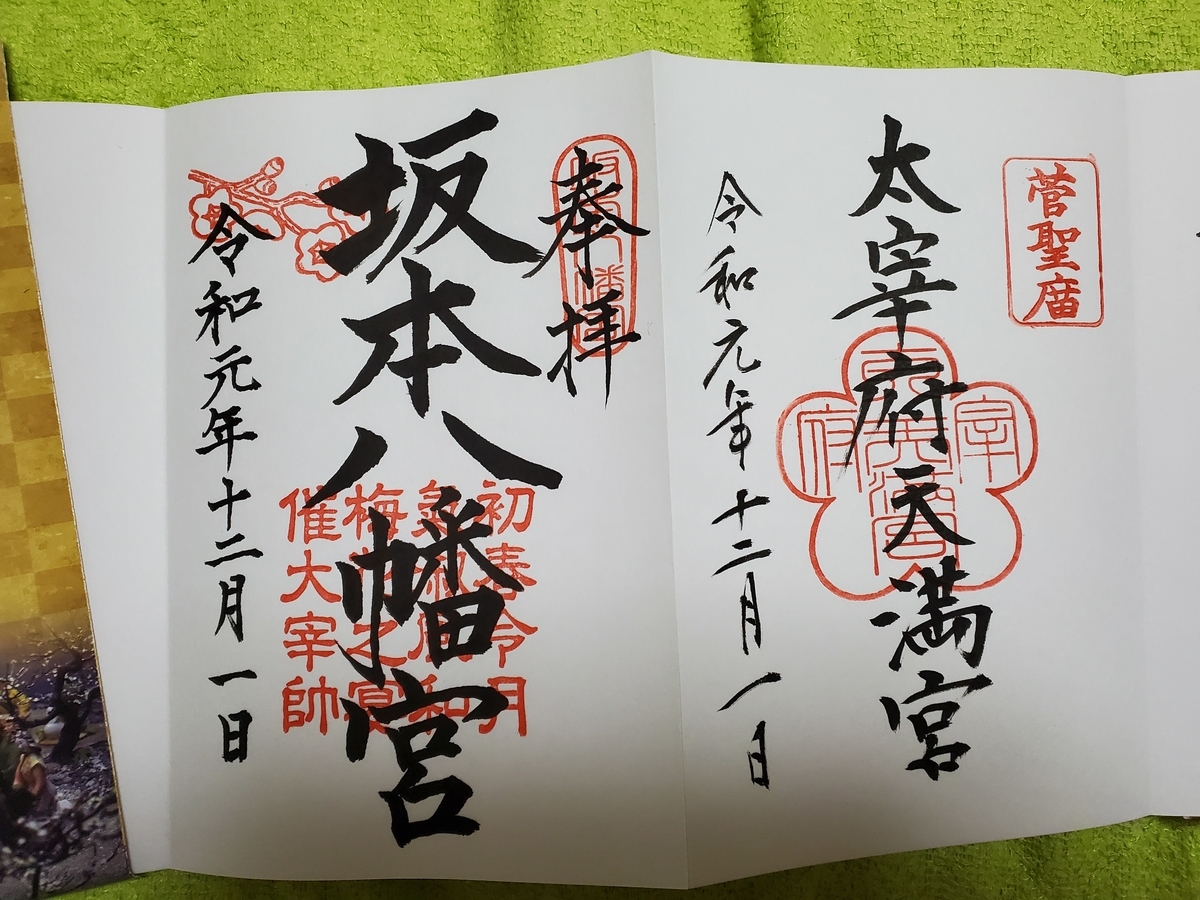 菅聖廟
太宰府天満宮
宰
府
令和元年十二月一日
奉拝
坂本八幡宮
初春令月
氣淑風和
梅花之宴
催大宰帥
令和元年十二月一日